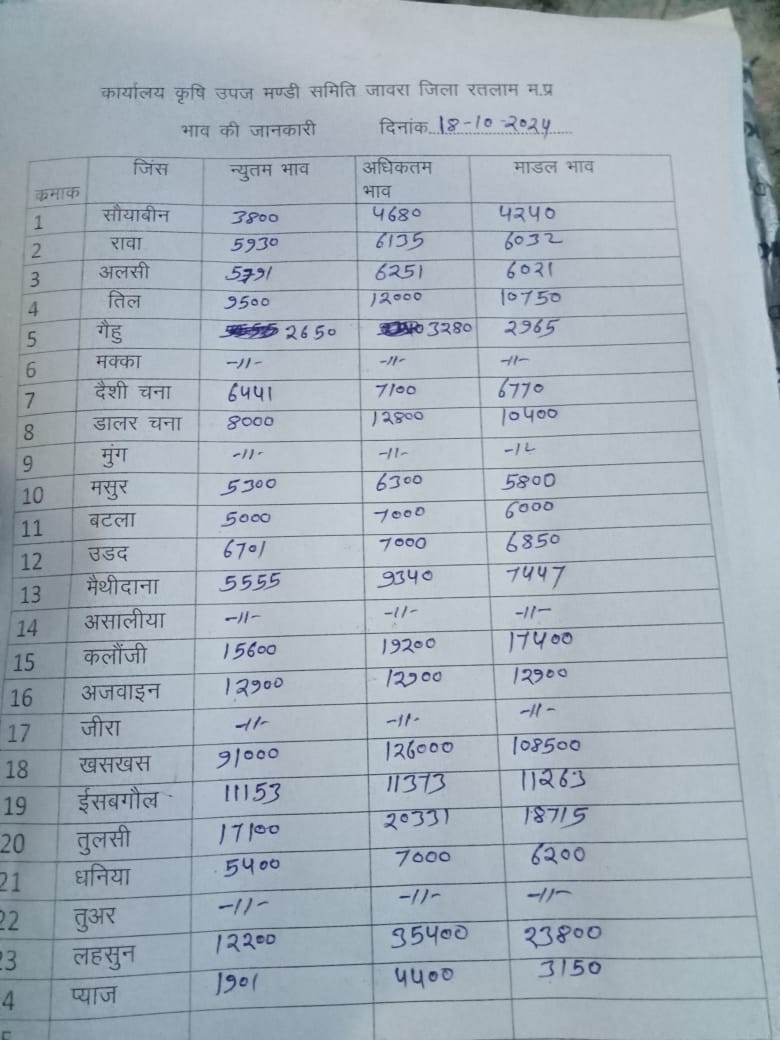 कार्यालय कृषि उपज मण्डी समिति जावरा जिला रतलाम म.प्र
भाव की जानकारी दिनांक..18-10-2024......
कमाक जिंस न्युतम भाव अधिकतम भाव माडल भाव
1 सौयाबीन 3800 4680 4240
2 रावा 5930 6135 6032
3 अलसी 5791 6251 6021
4 तिल 9500 12000 10750
5 गैहु 2650 3280 2965
6 मक्का -11- -11- -11-
7 दैशी चना 6441 7100 6770
8 डालर चना 8000 12800 10400
9 मुंग -11- -11- -11
10 मसुर 5300 6300 5800
11 बटला 5000 7000 6000
12 उडद 6701 7000 6850
13 मैथीदाना 5555 9340 7447
14 असालीया -11- -11- -11-
15 कलौंजी 15600 19200 17400
16 अजवाइन 12900 12900 12900
17 जीरा -11- -11- -11-
18 खसखस 91000 126000 108500
19 ईसबगौल 11153 11373 11263
20 तुलसी 17100 20331 18715
21 धनिया 5400 7000 6200
22 तुअर -11- -11- -11-
3 लहसुन 12200 35400 23800
4 प्याज 1901 4400 3150